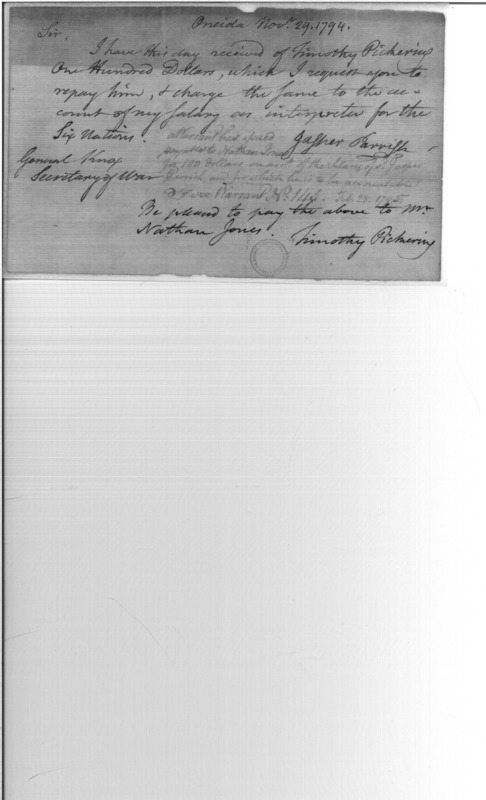 Oneida Nov.r 29. 1794.
Sir,
I have this day received of Timothy Pickering
One Hundred Dollars, which I request you to
repay him, & charge the same to the ac-
count of my salary as interpreter for the
Six Nations.
Jasper Parrish
General Knox
Secretary of War
a Warrant had issued
payable to Nathan Jones
for 100 dollars on acct of the salary of Jasper
Parrish, and for which he is to be accountable
Warrant No. 145. Feb. 28. 1795
Be pleased to pay the above to Mr.
Nathan Jones.
Timothy Pickering